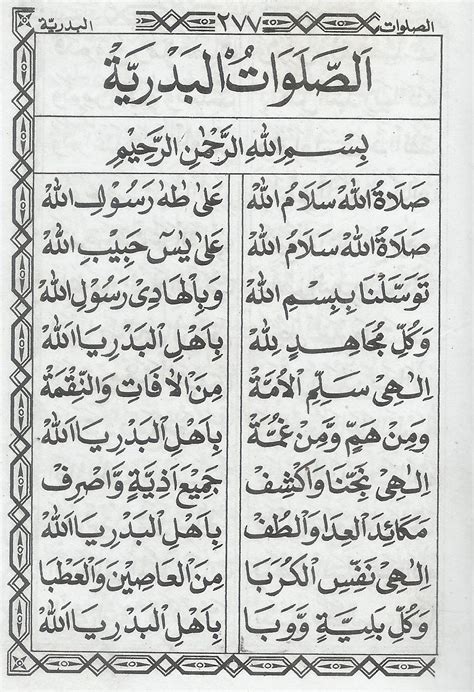 الصلوات ٢٧٧ البدرية
الصَّلَوَاتُ الْبَدْرِيَّةُ
بِسْمِ اللهِ الرَّحْمٰنِ الرَّحِيْمِ
صَلَاةُ اللهْ سَلَامُ اللهْ عَلٰى طٰهٰ رَسُوْلِ اللهْ
صَلَاةُ اللهْ سَلَامُ اللهْ عَلٰى يٰسٓ حَبِيْبِ اللهْ
تَوَسَّلْنَا بِبِسْمِ اللهْ وَبِالْهَادِى رَسُوْلِ اللهْ
وَكُلِّ مُجَاهِدٍ لِلّٰهْ بِاَهْلِ الْبَدْرِ يَا اَللهْ
اِلٰهِى سَلِّمِ الْاُمَّةْ مِنَ الْاٰفَاتِ وَالنِّقْمَةْ
وَمِنْ هَمٍّ وَّمِنْ غُمَّةْ بِاَهْلِ الْبَدْرِ يَا اَللهْ
اِلٰهِى نَجِّنَا وَاكْشِفْ جَمِيْعَ اَذِيَّةٍ وَّاصْرِفْ
مَكَائِدَ الْعِدَا وَالْطُفْ بِاَهْلِ الْبَدْرِ يَا اَللهْ
اِلٰهِى نَفِّسِ الْكُرَبَا مِنَ الْعَاصِيْنَ وَالْعَطْبَا
وَكُلِّ بَلِيَّةٍ وَّوَبَا بِاَهْلِ الْبَدْرِ يَا اَللهْ